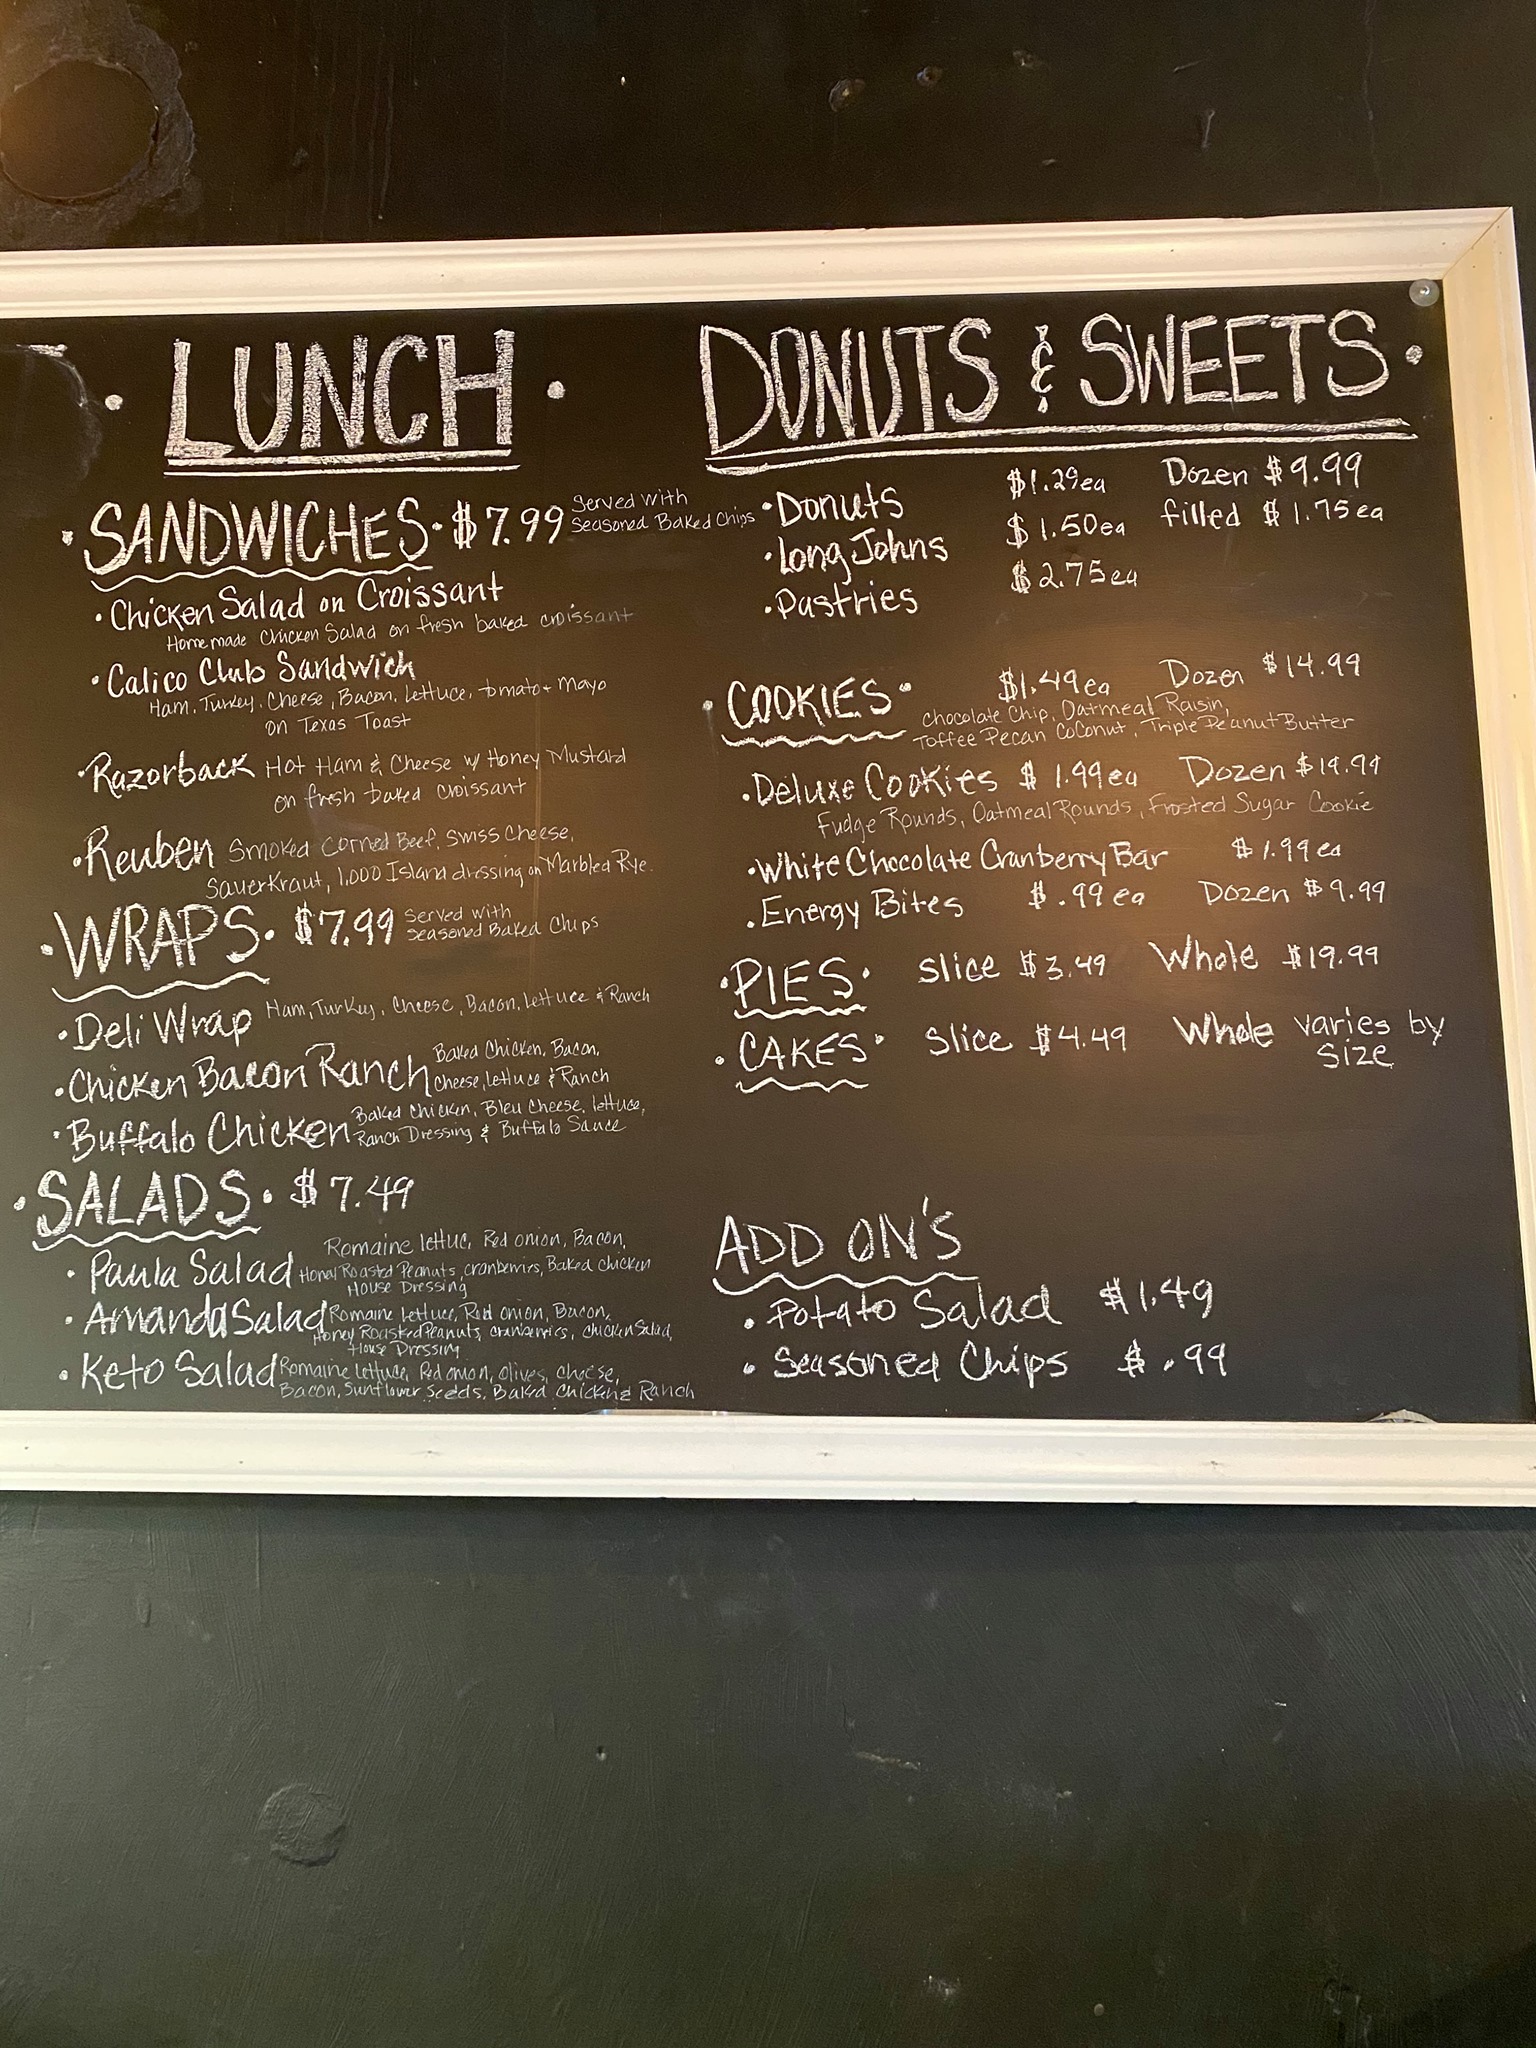 · LUNCH ·
· SANDWICHES · $7.99 Served with
Seasoned Baked Chips
· Chicken Salad on Croissant
Homemade Chicken Salad on fresh baked croissant
· Calico Club Sandwich
Ham, Turkey, Cheese, Bacon, Lettuce, tomato + Mayo
on Texas Toast
· Razorback Hot Ham & Cheese w/ Honey Mustard
on fresh baked croissant
· Reuben Smoked Corned Beef, Swiss Cheese,
Sauerkraut, 1,000 Island dressing on Marbled Rye.
· WRAPS · $7.99 Served with
Seasoned Baked Chips
· Deli Wrap Ham, Turkey, Cheese, Bacon, Lettuce & Ranch
· Chicken Bacon Ranch Baked Chicken, Bacon,
Cheese, Lettuce & Ranch
· Buffalo Chicken Baked Chicken, Bleu Cheese, lettuce,
Ranch Dressing & Buffalo Sauce
· SALADS · $7.49
· Paula Salad Romaine lettuc, Red onion, Bacon,
Honey Roasted Peanuts, cranberries, Baked chicken
House Dressing
· Amanda Salad Romaine Lettuce, Red onion, Bacon,
Honey Roasted Peanuts, cranberries, chicken Salad,
House Dressing
· Keto Salad Romaine Lettuce, Red onion, olives, cheese,
Bacon, Sunflower Seeds, Baked Chicken & Ranch
DONUTS & SWEETS ·
· Donuts $1.29ea Dozen $9.99
· Long Johns $1.50ea filled $1.75ea
· Pastries $2.75ea
· COOKIES · $1.49ea Dozen $14.99
Chocolate Chip, Oatmeal Raisin,
Toffee Pecan Coconut, Triple Peanut Butter
· Deluxe Cookies $1.99ea Dozen $19.99
Fudge Rounds, Oatmeal Rounds, Frosted Sugar Cookie
· White Chocolate Cranberry Bar $1.99ea
· Energy Bites $.99ea Dozen $9.99
· PIES · slice $3.49 Whole $19.99
· CAKES · slice $4.49 Whole varies by
size
ADD ON'S
· Potato Salad $1.49
· Seasoned Chips $.99